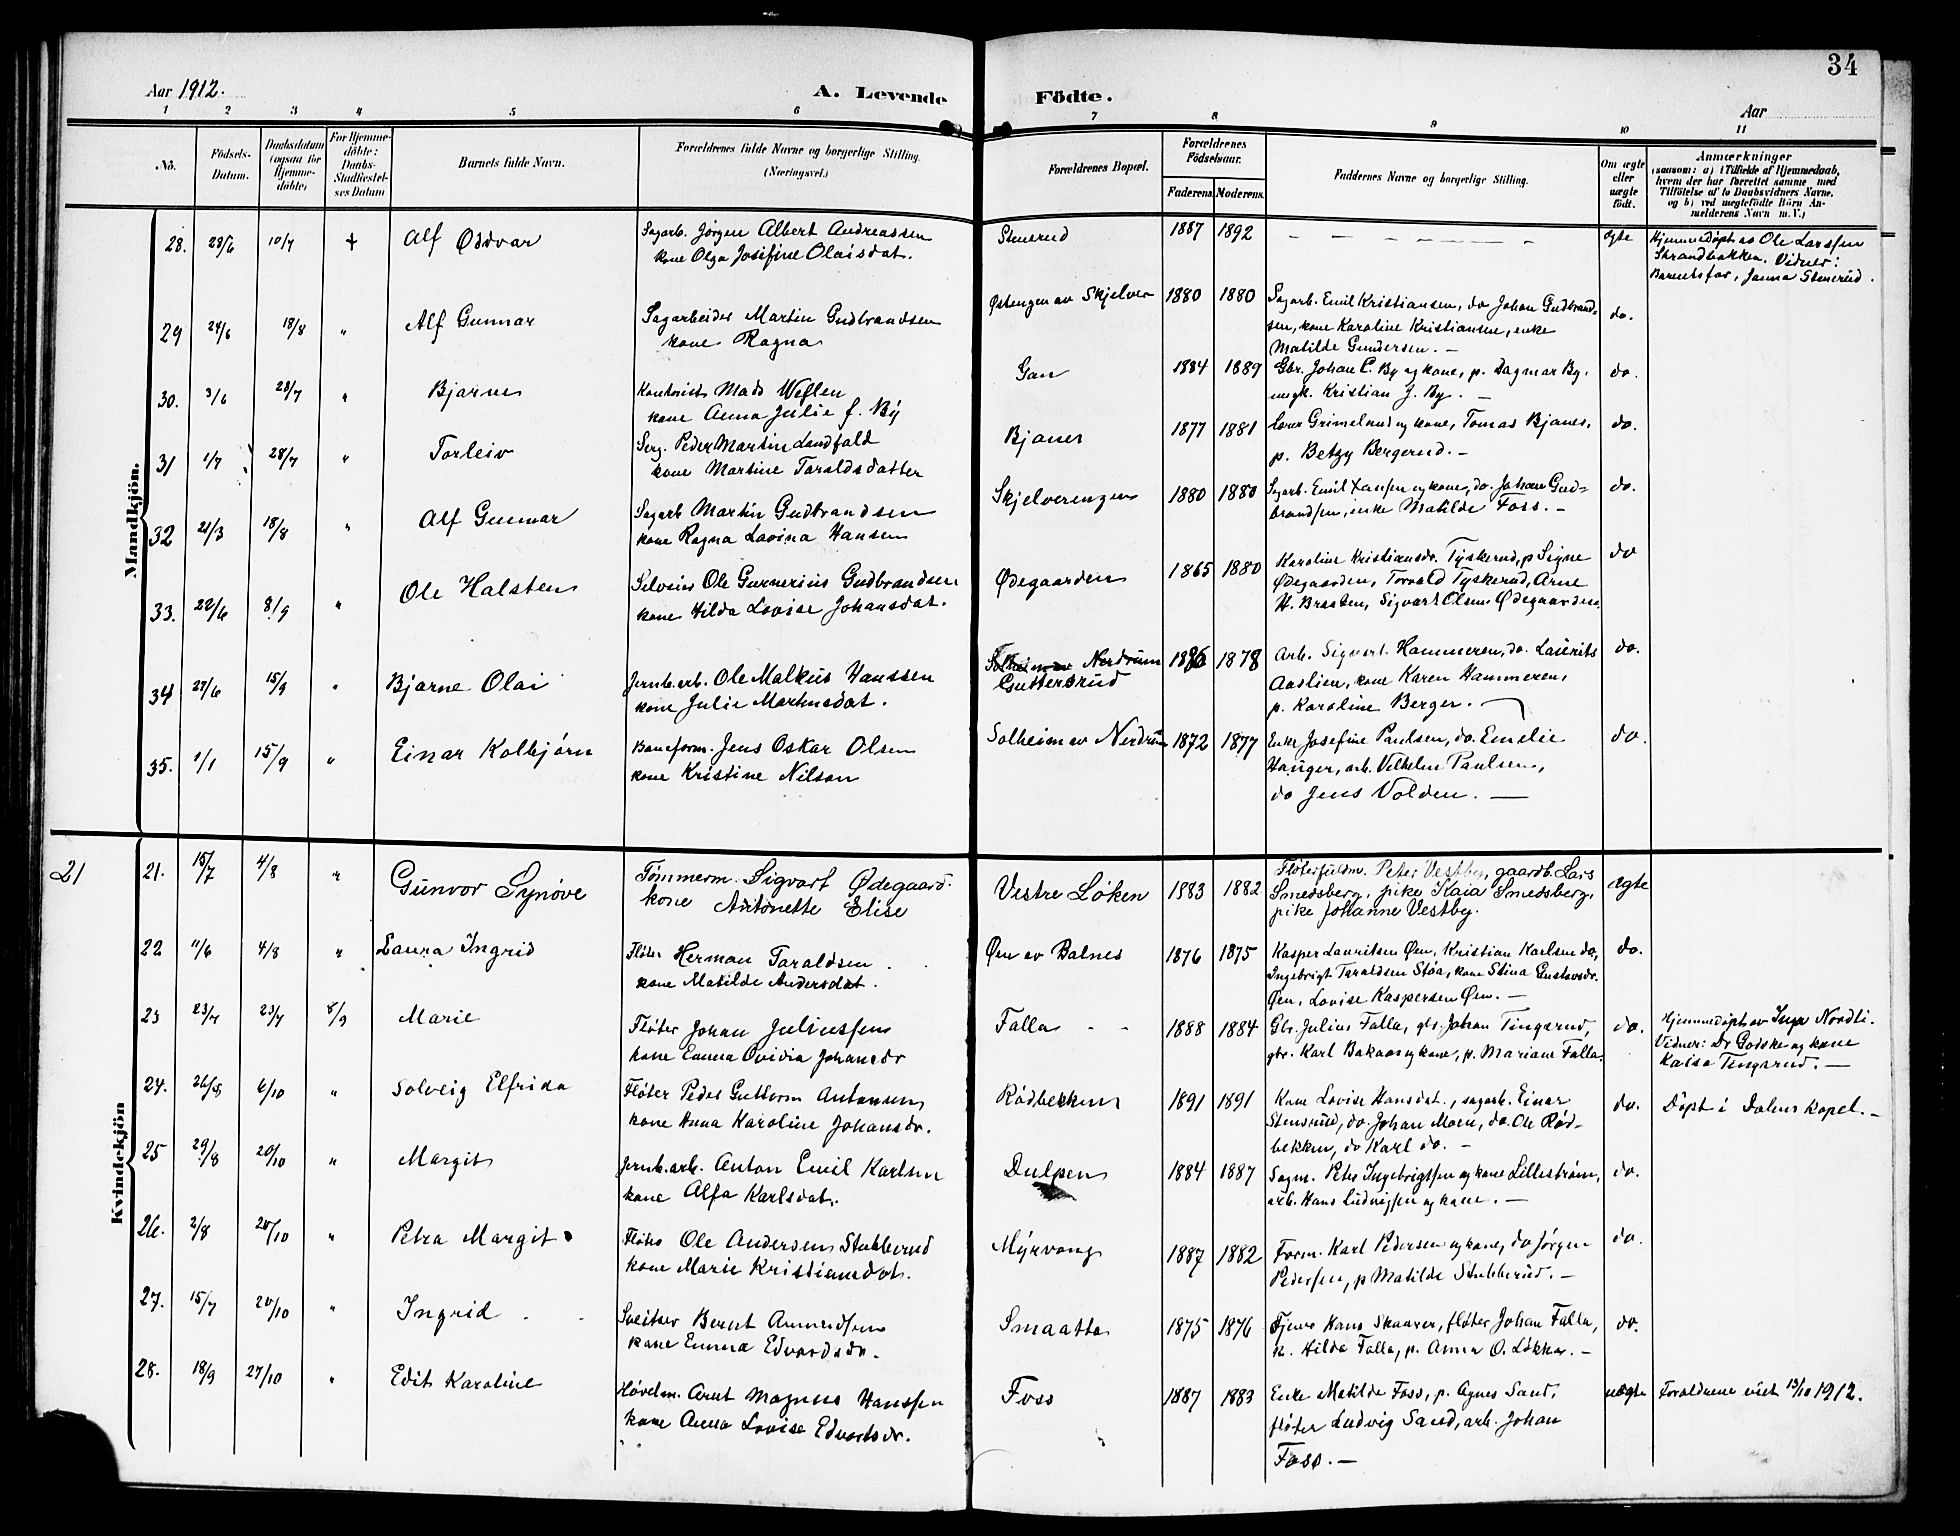 34
Aar 1912.
A. Levende Födte.
Aar
1 2 3 4 5 6 7 8 9 10 11
No.
Födsels-Datum.
Daabsdatum (ogsaa for Hjemmedöbte)
For Hjemmedöbte: Daabs-Stadfæstelses Datum
Barnets fulde Navn.
Forældrenes fulde Navne og borgerlige Stilling. (Næringsvei.)
Forældrenes Bopæl.
Forældrenes Födselsaar.
Faderens. Moderens.
Faddernes Navne og borgerlige Stilling.
Om ægte eller uægte födt.
Anmærkninger
(saasom: a) i Tilfælde af Hjemmedaab,
hvem der har forrettet samme med
Tilföielse af to Daabsvidners Navne,
og b) ved uægtefödte Börn An-
melderens Navn m. V.)
Mandkjön.
28. 28/6 10/7 + Alf Oddvar
Sagarb. Jørgen Albert Andreassen
kone Olga Josifine Olaisdat.
Stenerud 1887 1892 — — — — — — ægte
Hjemmedøpt av Ole Larssen
Strandbakken. Vidner:
Barnets far, Janna Stenerud.
29 24/6 18/8 " Alf Gunnar
Sagarbeider Martin Gudbrandsen
kone Ragna
Østengen av Skjelver 1880 1880
Sagarb. Emil Kristiansen, do Johan Gudbrand-
sen, kone Karoline Kristiansen, enke
Matilde Gundersen. —
do.
30. 3/6 28/7 " Bjarne
Kontorist Mads Weflen
kone Anna Julie f. By
Gan 1884 1889
Gbr. Johan C. By og kone, p. Dagmar By,
ungk. Kristian J. By. —
do.
31 1/7 28/7 " Torleiv
Serg. Peder Martin Landfald
kone Martine Taraldsdatter
Bjanes 1877 1881
Lærer Grimelund og kone, Tomas Bjanes,
p. Betzy Bergerud. —
do.
32 21/3 18/8 " Alf Gunnar
Sagarb Martin Gudbrandsen
kone Ragna Lovina Hansen
Skjelverengen 1880 1880
Sagarb. Emil Hansen og kone, do. Johan Gud-
brandsen, enke Matilde Foss. —
do.
33. 22/6 8/9 " Ole Halsten
Selveier Ole Gunnerius Gudbrandsen
kone Hilda Lovise Johansdat.
Ødegaarden 1865 1880
Karoline Kristiansdr. Tyskerud, p Signe
Ødegaarden, Torvald Tyskerud, Arne
H. Braaten, Sigvart Olsen Ødegaarden.
do
34 27/6 15/9 " Bjarne Olai
Jernb.arb. Ole Malkus Hanssen
kone Julie Martinsdat.
Solheim av Nerdrum
Guttersrud
1886 1878
Arb. Sigvart Hammeren, do. Laurits
Aaslien, kone Karen Hammeren,
p. Karoline Berger. —
do.
35. 1/1 15/9 " Einar Kolbjørn
Baneform. Jens Oskar Olsen
kone Kristine Nilsen
Solheim av Nerdrum 1872 1877
Enke Josefine Paulsen, do. Emelie
Hauger, arb. Vilhelm Paulsen,
do Jens Volden. —
do.
Kvindekjön
21
21. 15/7 4/8 " Gunvor Synøve
Tømmerm. Sigvart Ødegaard.
kone Antonette Elise
Vestre Løken 1883 1882
Fløterfuldm. Peter Vestby, gaardb. Lars
Smedsberg, pike Kaia Smedsberg,
pike Johanne Vestby.
ægte
22 11/6 4/8 " Laura Ingrid
Fløter Herman Taraldsen
kone Matilde Andersdat.
Øen av Balnes 1876 1875
Kasper Lauritsen Øen, Kristian Karlsen do,
Ingebrigt Taraldsen Støa, kone Stina Gustavsdr.
Øen, Lovise Kaspersen Øen. —
do.
23 23/7 23/7 8/9 Marie
Fløter Johan Juliussen
kone Emma Ovidia Johansdr
Falla 1888 1884
Gbr. Julius Falla, gbr. Johan Tingsrud,
gbr. Karl Bakaas og kone, p. Mariane Falla.
do.
Hjemmedøpt av Inga Nordli.
Vidner: Dr Godske og kone
Kaisa Tingsrud. —
24. 26/8 6/10 " Solveig Elfrida
Fløter Peder Guttorm Antonsen
kone Anna Karoline Johansdr.
Rødbekken 1891 1891
Kone Lovise Hansdat., sagarb. Einar
Stensrud, do. Johan Moen, do. Ole Rød-
bekken, do Karl do. —
do.
Døpt i Dalens kapel. —
25 29/8 20/10 " Margit
Jernb.arb. Anton Emil Karlsen
kone Alfa Karlsdat.
Dulpen 1884 1887
Sagm. Peter Ingebrigtsen og kone Lillestrøm,
arb. Hans Ludvigsen og kone. —
do.
26. 2/8 20/10 " Petra Margit
Fløter Ole Andersen Stubberud
kone Marie Kristiansdat.
Myrvang 1887 1882
Form. Karl Pedersen og kone, do Jørgen
Pedersen, p Matilde Stubberud. —
do.
27. 15/7 20/10 " Ingrid
Sveitser Bernt Amundsen
kone Emma Edvardsdr.
Smaatta 1875 1876
Hans Skaarer, fløter Johan Falla,
k. Hilda Falla, p. Anna O. Løkka. —
do.
28. 18/9 27/10 " Edit Karoline
Høvelm. Arnt Magnus Hanssen
kone Anna Lovise Edvartsdr.
Foss 1887 1883
Enke Matilde Foss, p. Agnes Sand,
fløter Ludvig Sand, arb. Johan
Foss. —
uægte
Forældrene viet 13/10 1912.